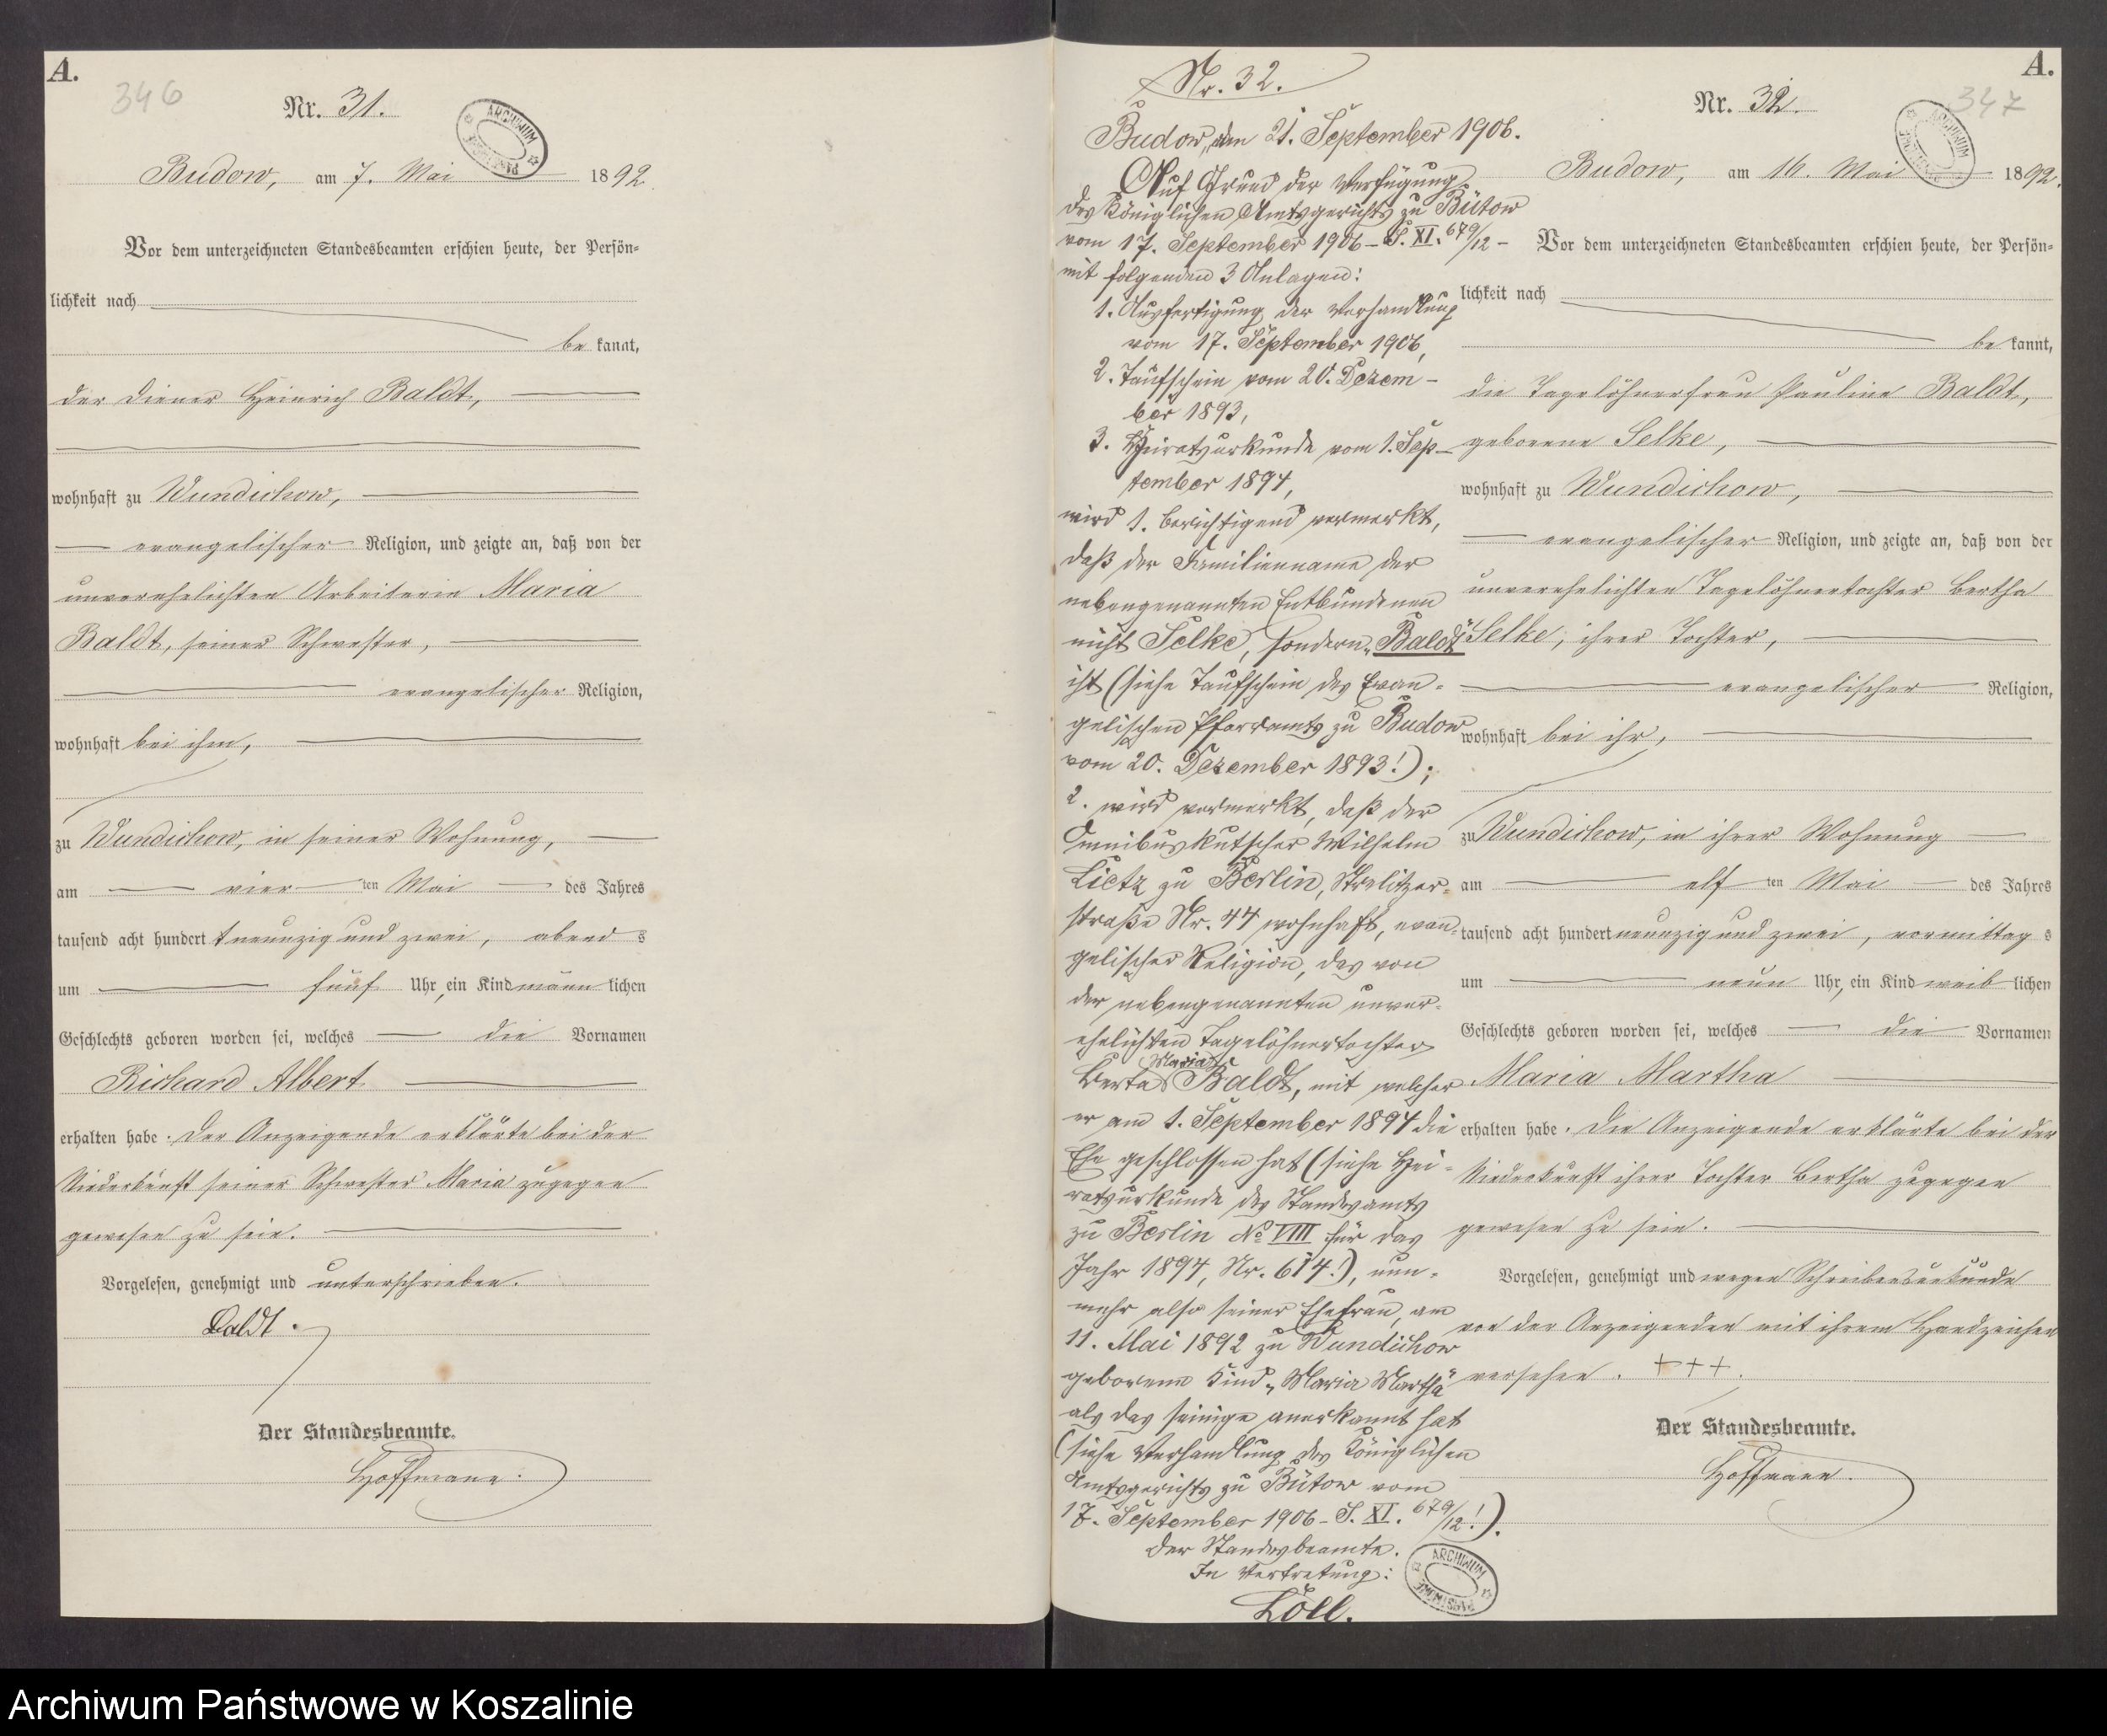 A.
346
Nr. 31.
ARCHIWUM
Budow, am 7. Mai 1892.
Vor dem unterzeichneten Standesbeamten erschien heute, der Persön-
lichkeit nach
be kannt,
der Diener Heinrich Baldt,
wohnhaft zu Wundichow,
evangelischer Religion, und zeigte an, daß von der
unverehelichten Arbeiterin Maria
Baldt, seiner Schwester,
evangelischer Religion,
wohnhaft bei ihm,
zu Wundichow, in seiner Wohnung,
am vier ten Mai des Jahres
tausend acht hundert neunzig und zwei, abend s
um fünf Uhr, ein Kind männ lichen
Geschlechts geboren worden sei, welches die Vornamen
Richard Albert
erhalten habe. Der Anzeigende erklärte bei der
Niederkunft seiner Schwester Maria zugegen
gewesen zu sein.
Vorgelesen, genehmigt und unterschrieben.
Baldt.
Der Standesbeamte.
Hoffmann.
Nr. 32.
Budow, den 21. September 1906.
Auf Grund der Verfügung
des Königlichen Amtsgerichts zu Bütow
vom 17. September 1906 – S. XI. 679/12 –
mit folgenden 3 Anlagen:
1. Ausfertigung der Verhandlung
vom 17. September 1906,
2. Taufschein vom 20. Dezem-
ber 1893,
3. Heiratsurkunde vom 1. Sep-
tember 1894,
wird 1. berichtigend vermerkt,
daß der Familienname der
nebengenannten Entbundenen
nicht Selke, sondern „Baldt“
ist (siehe Taufschein des Evan-
gelischen Pfarramts zu Budow
vom 20. Dezember 1893!);
2. wird vermerkt, daß der
Omnibuskutscher Wilhelm
Lietz zu Berlin, Strelitzer-
straße Nr. 44 wohnhaft, evan-
gelischer Religion, das von
der nebengenannten unver-
ehelichten Tagelöhnertochter
Maria
Berta Baldt, mit welcher
er am 1. September 1894 die
Ehe geschlossen hat (siehe Hei-
ratsurkunde des Standesamts
zu Berlin No VIII für das
Jahr 1894, Nr. 614!), nun-
mehr also seiner Ehefrau, am
11. Mai 1892 zu Wundichow
geborene Kind „Maria Martha“
als das seinige anerkannt hat
(siehe Verhandlung des Königlichen
Amtsgerichts zu Bütow vom
17. September 1906 – S. XI. 679/12!).
Der Standesbeamte.
In Vertretung:
Löll.
ARCHIWUM
A.
347
Nr. 32.
ARCHIWUM
Budow, am 16. Mai 1892.
Vor dem unterzeichneten Standesbeamten erschien heute, der Persön-
lichkeit nach
be kannt,
die Tagelöhnerfrau Pauline Baldt,
geborene Selke,
wohnhaft zu Wundichow,
evangelischer Religion, und zeigte an, daß von der
unverehelichten Tagelöhnertochter Bertha
Selke, ihrer Tochter,
evangelischer Religion,
wohnhaft bei ihr,
zu Wundichow, in ihrer Wohnung
am elf ten Mai des Jahres
tausend acht hundert neunzig und zwei, vormittag s
um neun Uhr, ein Kind weib lichen
Geschlechts geboren worden sei, welches die Vornamen
Maria Martha
erhalten habe. Die Anzeigende erklärte bei der
Niederkunft ihrer Tochter Bertha zugegen
gewesen zu sein.
Vorgelesen, genehmigt und wegen Schreibensunkunde
von der Anzeigenden mit ihrem Handzeichen
versehen. +++.
Der Standesbeamte.
Hoffmann.
Archiwum Państwowe w Koszalinie